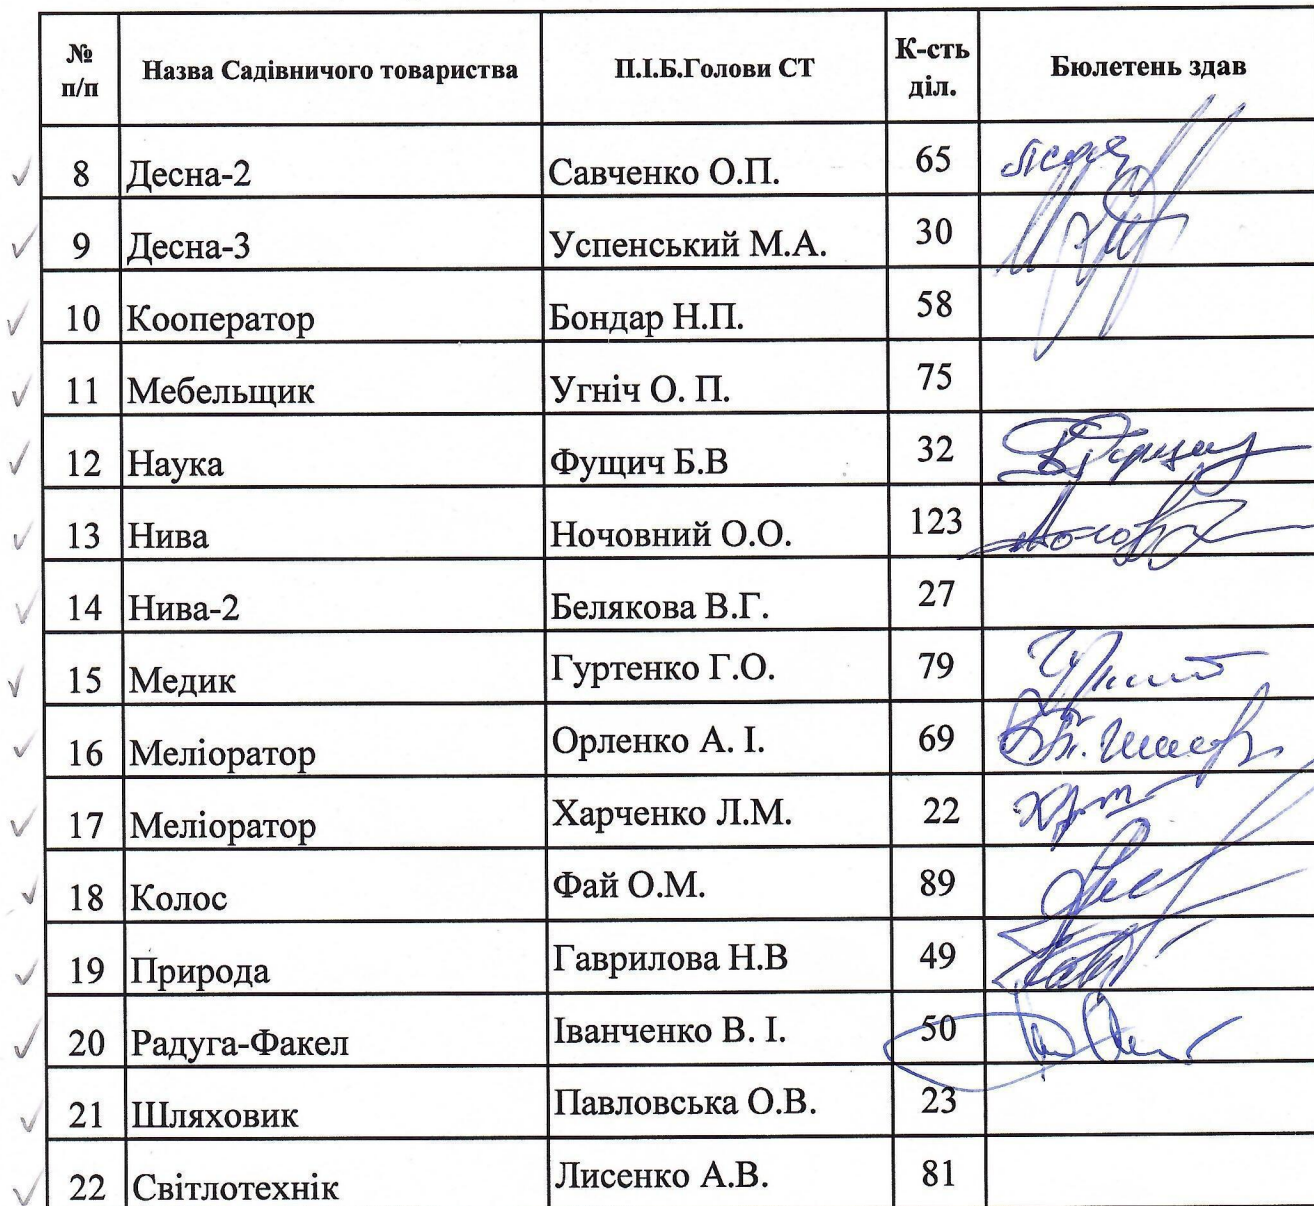 № п/п Назва Садівничого товариства П.І.Б.Голови СТ К-сть діл. Бюлетень здав
8 Десна-2 Савченко О.П. 65
9 Десна-3 Успенський М.А. 30
10 Кооператор Бондар Н.П. 58
11 Мебельщик Угніч О. П. 75
12 Наука Фущич Б.В 32
13 Нива Ночовний О.О. 123
14 Нива-2 Белякова В.Г. 27
15 Медик Гуртенко Г.О. 79
16 Меліоратор Орленко А. І. 69
17 Меліоратор Харченко Л.М. 22
18 Колос Фай О.М. 89
19 Природа Гаврилова Н.В 49
20 Радуга-Факел Іванченко В. І. 50
21 Шляховик Павловська О.В. 23
22 Світлотехнік Лисенко А.В. 81